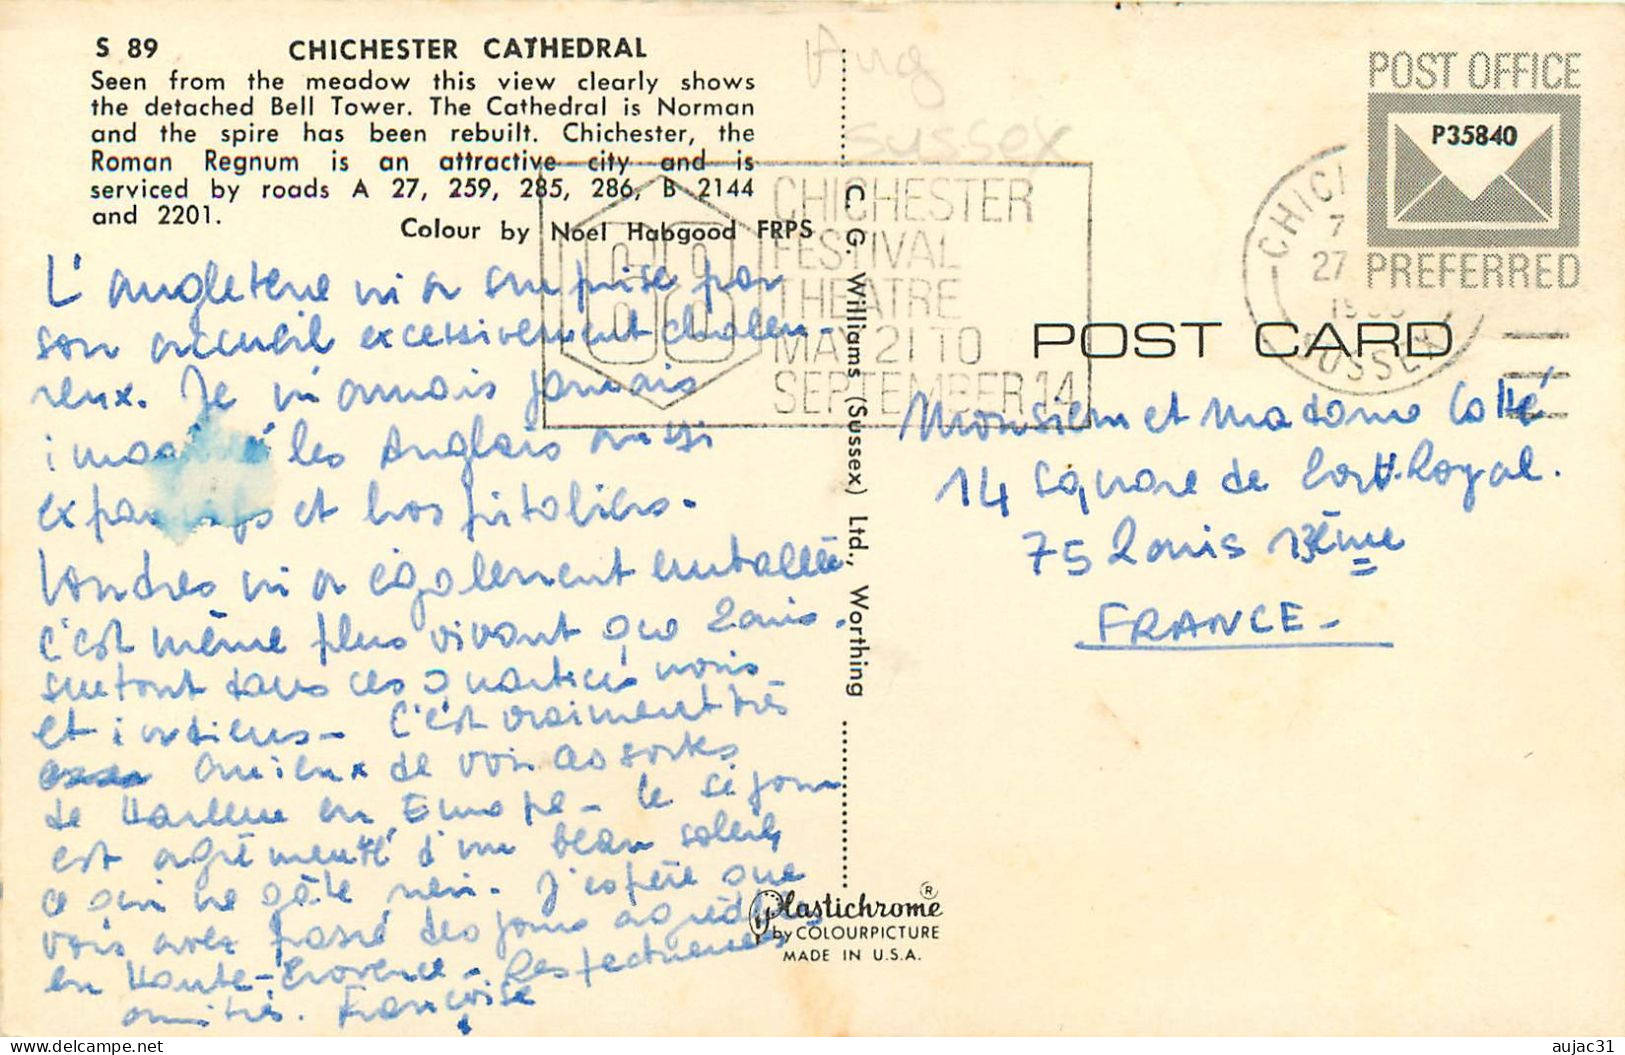 S 89 CHICHESTER CATHEDRAL
Seen from the meadow this view clearly shows
the detached Bell Tower. The Cathedral is Norman
and the spire has been rebuilt. Chichester, the
Roman Regnum is an attractive city and is
serviced by roads A 27, 259, 285, 286, B 2144
and 2201.
Colour by Noel Habgood FRPS
L'angleterre m'a surprise par
son accueil excessivement chaleu-
reux. Je n'amais jamais
les Anglais aussi
et hospitaliers.
Londres m'a également emballée
c'est même plus vivant que Paris.
surtout dans ces quartiers noirs
et indiens - C'est vraiment très
curieux de voir ces sortes
de Harlem en Europe - Le séjour
est agrémenté d'un beau soleil,
ce qui ne gâte rien. J'espère que
vous avez passé des jours agréables
en Haute-Provence - Respectueuses
amitiés. Françoise
Aug
Sussex
CHICHESTER
FESTIVAL
THEATRE
MAY 21 TO
SEPTEMBER 14
C. G. Williams (Sussex) Ltd., Worthing
POST OFFICE
P35840
PREFERRED
CHIC
7
27
SUSSEX
POST CARD
Monsieur et Madame Collé
14 Square de Port-Royal.
75 Paris 13ème
FRANCE -
Plastichrome ®
by COLOURPICTURE
MADE IN U.S.A.
delcampe.net
aujac31